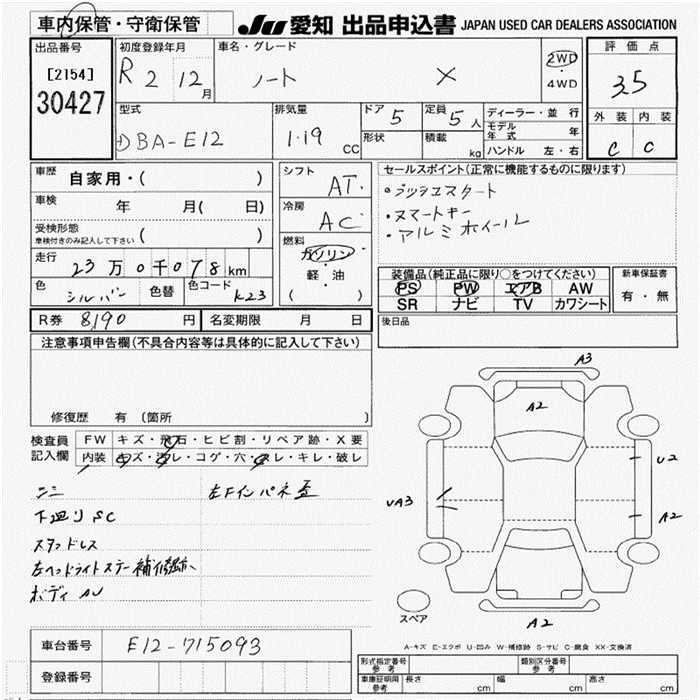 車内保管・守衛保管 JU 愛知 出品申込書 JAPAN USED CAR DEALERS ASSOCIATION
出品番号 初度登録年月 車名・グレード 2WD・4WD 評価点
[2154] R2 12月 ノート X 3.5
30427
型式 DBA-E12 排気量 1.19 CC ドア 5 定員 5人 ディーラー・並行 外装 内装
形状 積載 kg モデル年式 年 C C
ハンドル 左・右
車歴 自家用・( ) シフト AT. セールスポイント(正常に機能するものに限ります)
車検 年 月( 日) 冷房 AC
・スマートキー
受検形態 ( ) ・アルミホイール
車検付きのみ記入して下さい
燃料 ガソリン・軽・油 ( )
走行 23万0千078km 装備品(純正品に限り○をつけてください) 新車保証書
色 シルバー 色替 色コード K23 PS PW エアB AW 有・無
SR ナビ TV カワシート
R券 8,190円 名変期限 月 日 後日品
注意事項申告欄(不具合内容等は具体的に記入して下さい)
修復歴 有 〔箇所
検査員記入欄 FW キズ・飛石・ヒビ割・リペア跡・X要
内装 キズ・汚レ・コゲ・穴・スレ・キレ・破レ
A3
A2
U2
UA3
A2
A2
スペア
下廻りSC
スタッドレス
左ヘッドライトステー補修跡
ボディ
A-キズ E-エクボ U-凹み W-補修跡 S-サビ C-腐食 XX-交換済
車台番号 E12-715093
登録番号
形式指定番号 参考 類別区分番号 参考
車庫証明用 参考 長さ cm 幅 cm 高さ cm